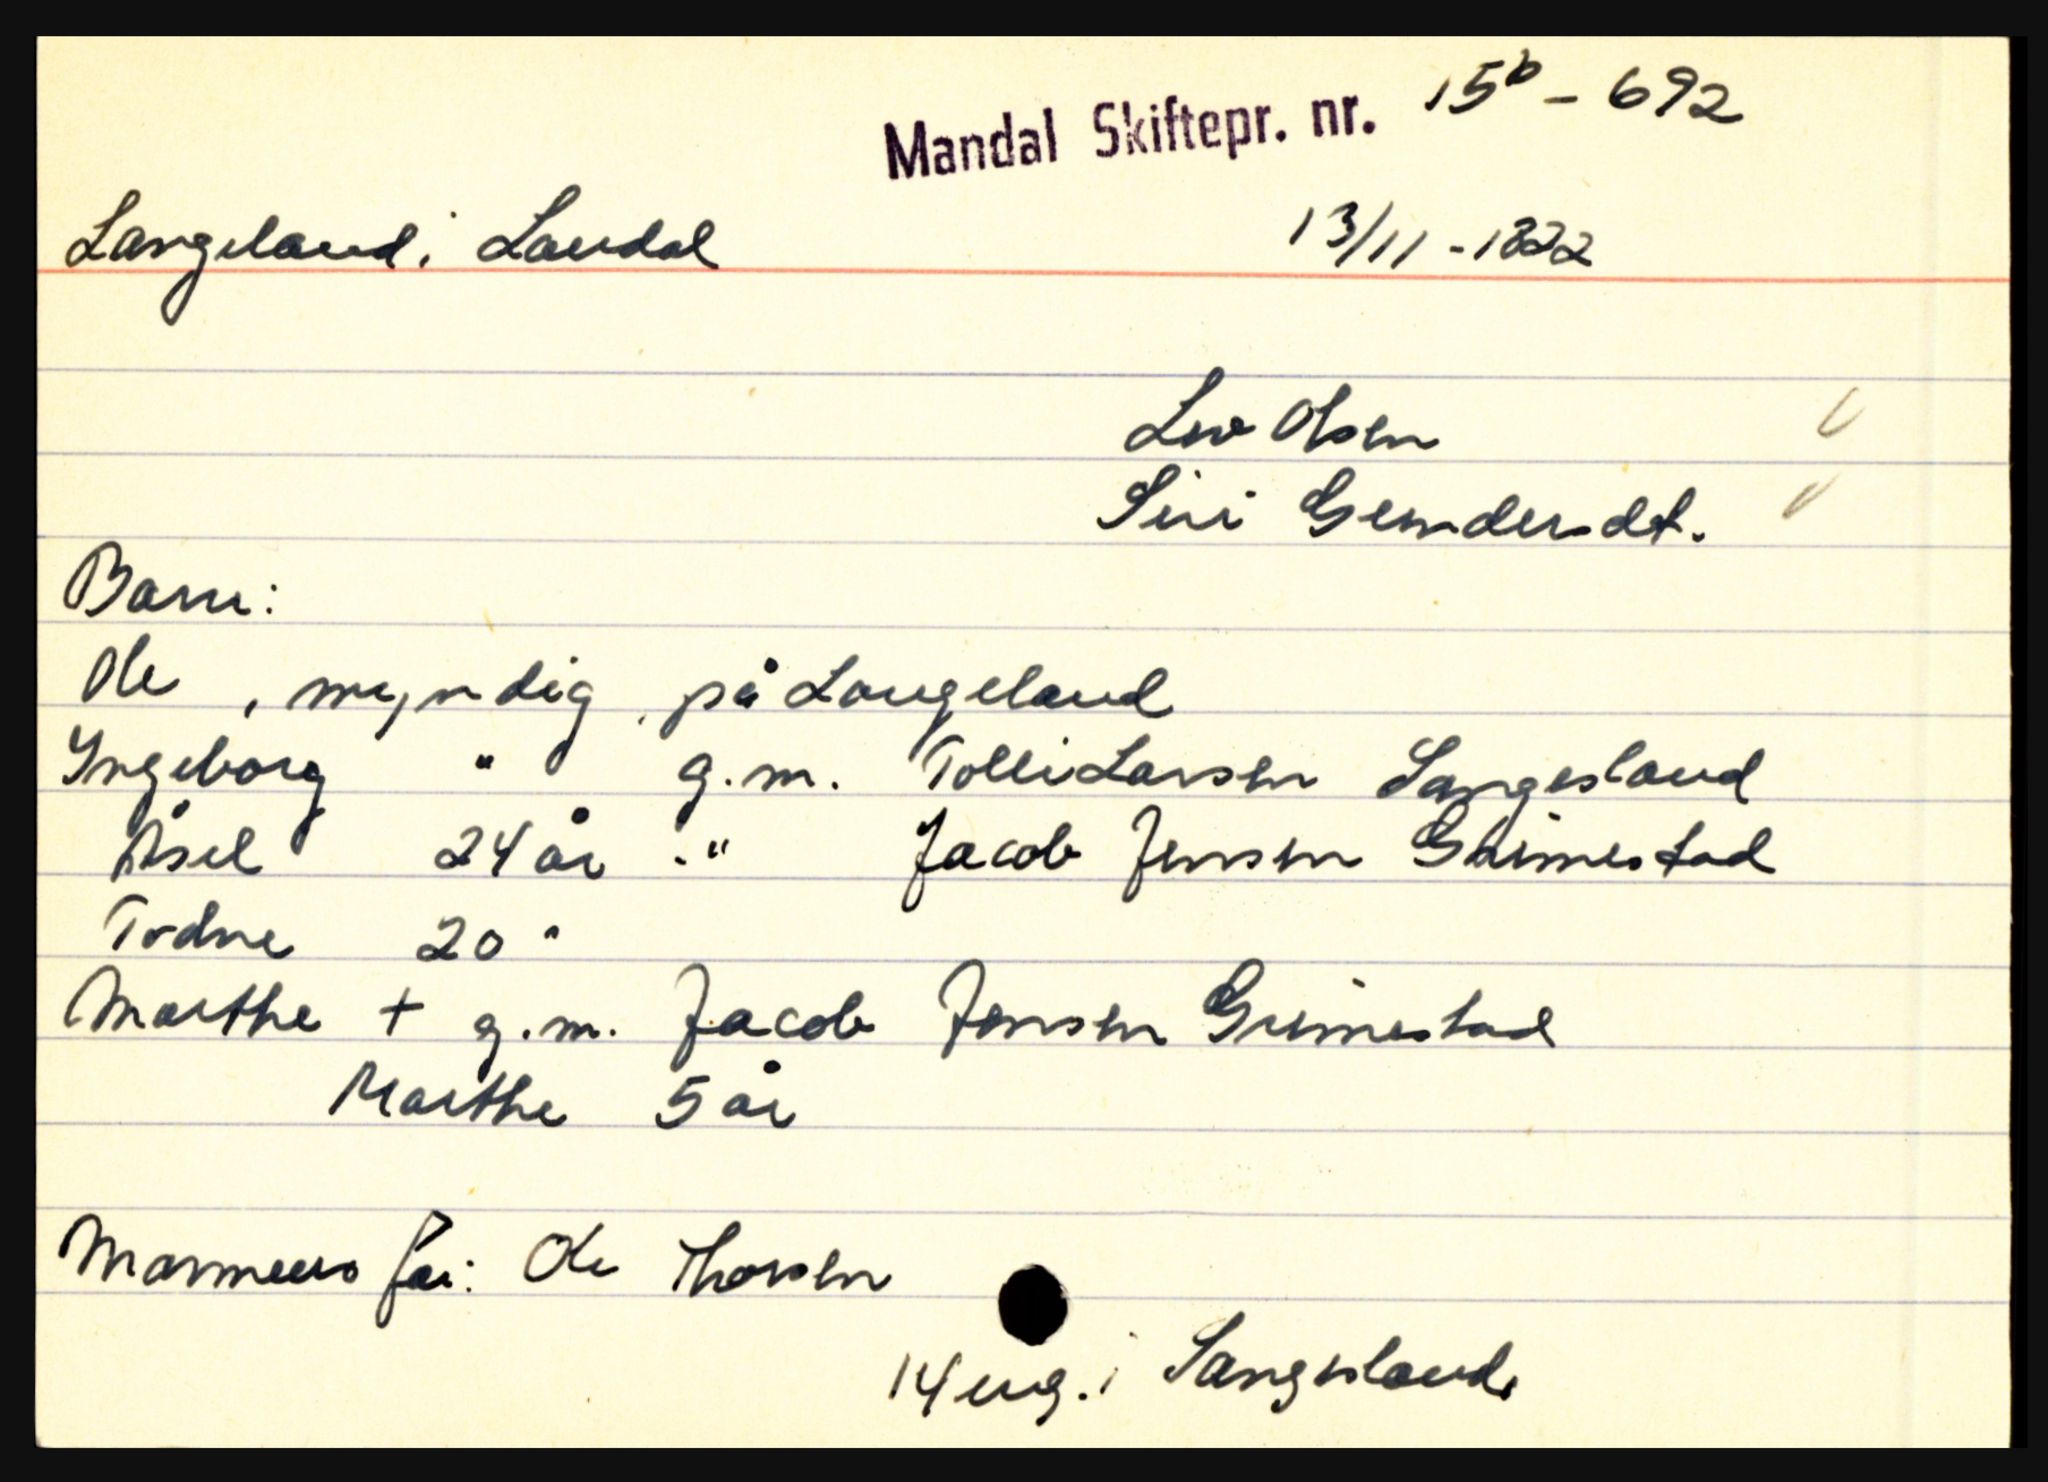 Mandal Skiftepr. nr. 15b - 692
Langeland i Laudal 13/11 - 1822
Lev Olsen
Siri Gunders dt.
Barn:
Ole , myndig , på Langeland
Ingeborg " g.m. Tolli Larsen Sangesland
Åsel 24 år - " Jacob Jensen Grimestad
Todne 20 "
Marthe + g.m. Jacob Jensen Grimestad
Marthe 5 år
Mannens far: Ole Thorsen
14 eng. i Sangesland.